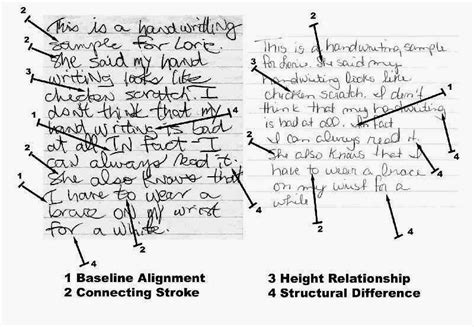 2
This is a handwritting
2 sample for Lori.
2 She said my hand
3 writing looks like
chicken scratch I
dont think that my 4
1 hand writing is bad
at all IN fact I
1 can always read it.
She also knows that
1 I have to wear a
brace on my wrist
for a while.
2
4
2
This is a handwriting sample
She said my
3 handwriting looks like
chicken scratch. I don't 1
think that my handwriting
is bad at all. In fact
I can always read it.
She also knows that I 4
2 have to wear a brace
on my wrist for a
while
2
4
1 Baseline Alignment
2 Connecting Stroke
3 Height Relationship
4 Structural Difference